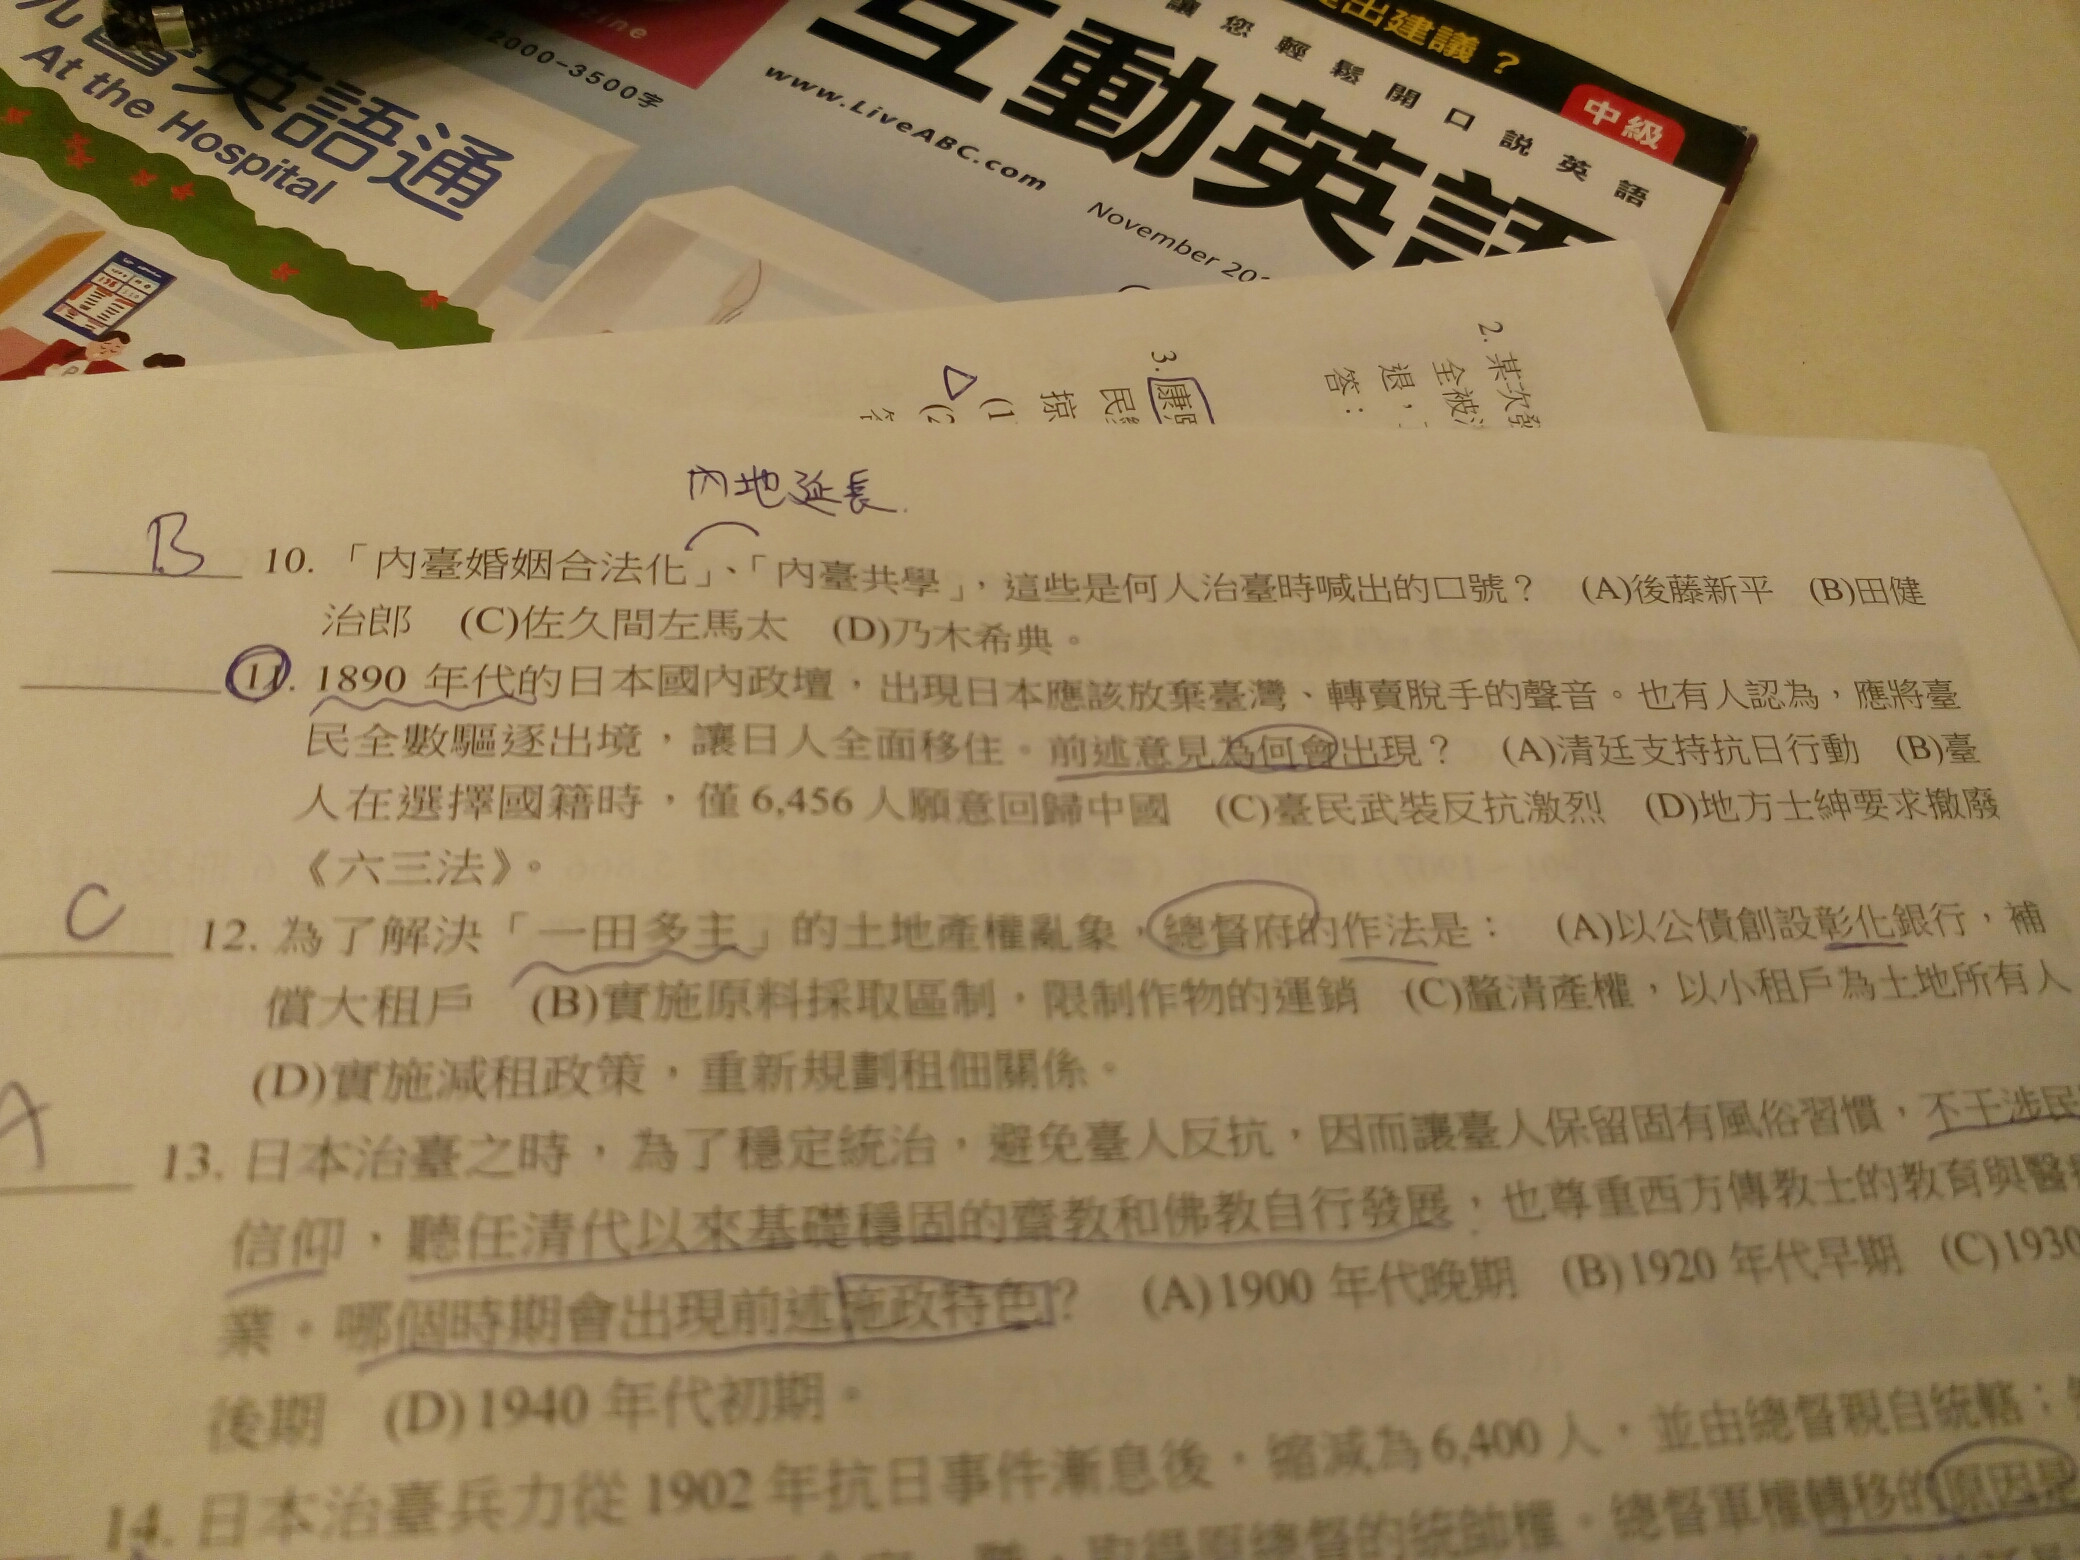 英語通
At the Hospital
zine
2000-3500字
互動英語
www.LiveABC.com
November 20
讓您輕鬆開口說英語
出建議？
中級
2. 某次
全被
退，
答：
3. 康熙
民
掠
(1
(2
內地延長
B 10. 「內臺婚姻合法化」、「內臺共學」，這些是何人治臺時喊出的口號？ (A)後藤新平 (B)田健
治郎 (C)佐久間左馬太 (D)乃木希典。
11. 1890 年代的日本國內政壇，出現日本應該放棄臺灣、轉賣脫手的聲音。也有人認為，應將臺
民全數驅逐出境，讓日人全面移住。前述意見為何會出現？ (A)清廷支持抗日行動 (B)臺
人在選擇國籍時，僅 6,456 人願意回歸中國 (C)臺民武裝反抗激烈 (D)地方士紳要求撤廢
《六三法》。
C 12. 為了解決「一田多主」的土地產權亂象，總督府的作法是： (A)以公債創設彰化銀行，補
償大租戶 (B)實施原料採取區制，限制作物的運銷 (C)釐清產權，以小租戶為土地所有人
(D)實施減租政策，重新規劃租佃關係。
A 13. 日本治臺之時，為了穩定統治，避免臺人反抗，因而讓臺人保留固有風俗習慣，不干涉民
信仰，聽任清代以來基礎穩固的齋教和佛教自行發展；也尊重西方傳教士的教育與醫
業。哪個時期會出現前述施政特色？ (A)1900 年代晚期 (B)1920 年代早期 (C)1930
後期 (D)1940 年代初期。
14. 日本治臺兵力從 1902 年抗日事件漸息後，縮減為 6,400 人，並由總督親自統轄；
取得原總督的統帥權。總督軍權轉移的原因是